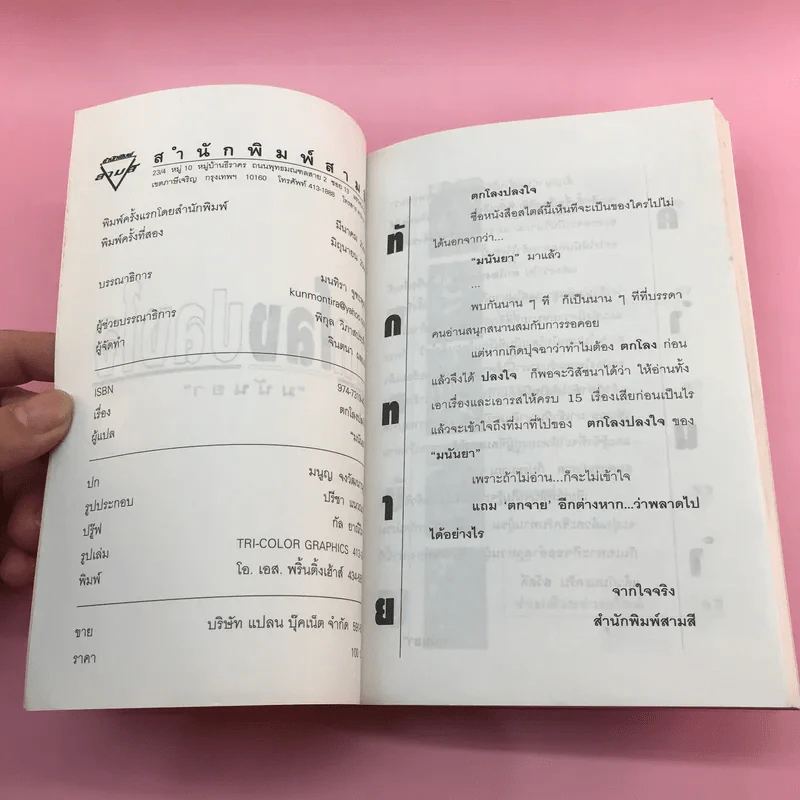 สำนักพิมพ์
สามสี
สำนักพิมพ์สาม
23/4 หมู่ 10 หมู่บ้านธีราคร ถนนพุทธมณฑลสาย 2 ซอย 13
เขตภาษีเจริญ กรุงเทพฯ 10160 โทรศัพท์ 413-1888
พิมพ์ครั้งแรกโดยสำนักพิมพ์ มีนาคม
พิมพ์ครั้งที่สอง มิถุนายน
บรรณาธิการ มนทิรา
kunmontira@yahoo
ผู้ช่วยบรรณาธิการ พิกุล
ผู้จัดทำ จินตนา
ISBN 974-73
เรื่อง ตกโลงปลง
ผู้แปล "มนันยา
ปก มนูญ จงวัฒนา
รูปประกอบ ปรีชา
ปรู๊ฟ กัล
รูปเล่ม TRI-COLOR GRAPHICS 413
พิมพ์ โอ. เอส. พริ้นติ้งเฮ้าส์ 434
ขาย บริษัท แปลน บุ๊คเน็ต จำกัด
ราคา 100
ทักทาย
ตกโลงปลงใจ
ชื่อหนังสือสไตล์นี้เห็นทีจะเป็นของใครไปไม่
ได้นอกจากว่า...
"มนันยา" มาแล้ว
...
พบกันนาน ๆ ที ก็เป็นนาน ๆ ทีที่บรรดา
คนอ่านสนุกสนานสมกับการรอคอย
แต่หากเกิดปุจฉาว่าทำไมต้อง ตกโลง ก่อน
แล้วจึงได้ ปลงใจ ก็พอจะวิสัชนาได้ว่า ให้อ่านทั้ง
เอาเรื่องและเอารสให้ครบ 15 เรื่องเสียก่อนเป็นไร
แล้วจะเข้าใจถึงที่มาที่ไปของ ตกโลงปลงใจ ของ
"มนันยา"
เพราะถ้าไม่อ่าน...ก็จะไม่เข้าใจ
แถม 'ตกจาย' อีกต่างหาก...ว่าพลาดไป
ได้อย่างไร
จากใจจริง
สำนักพิมพ์สามสี